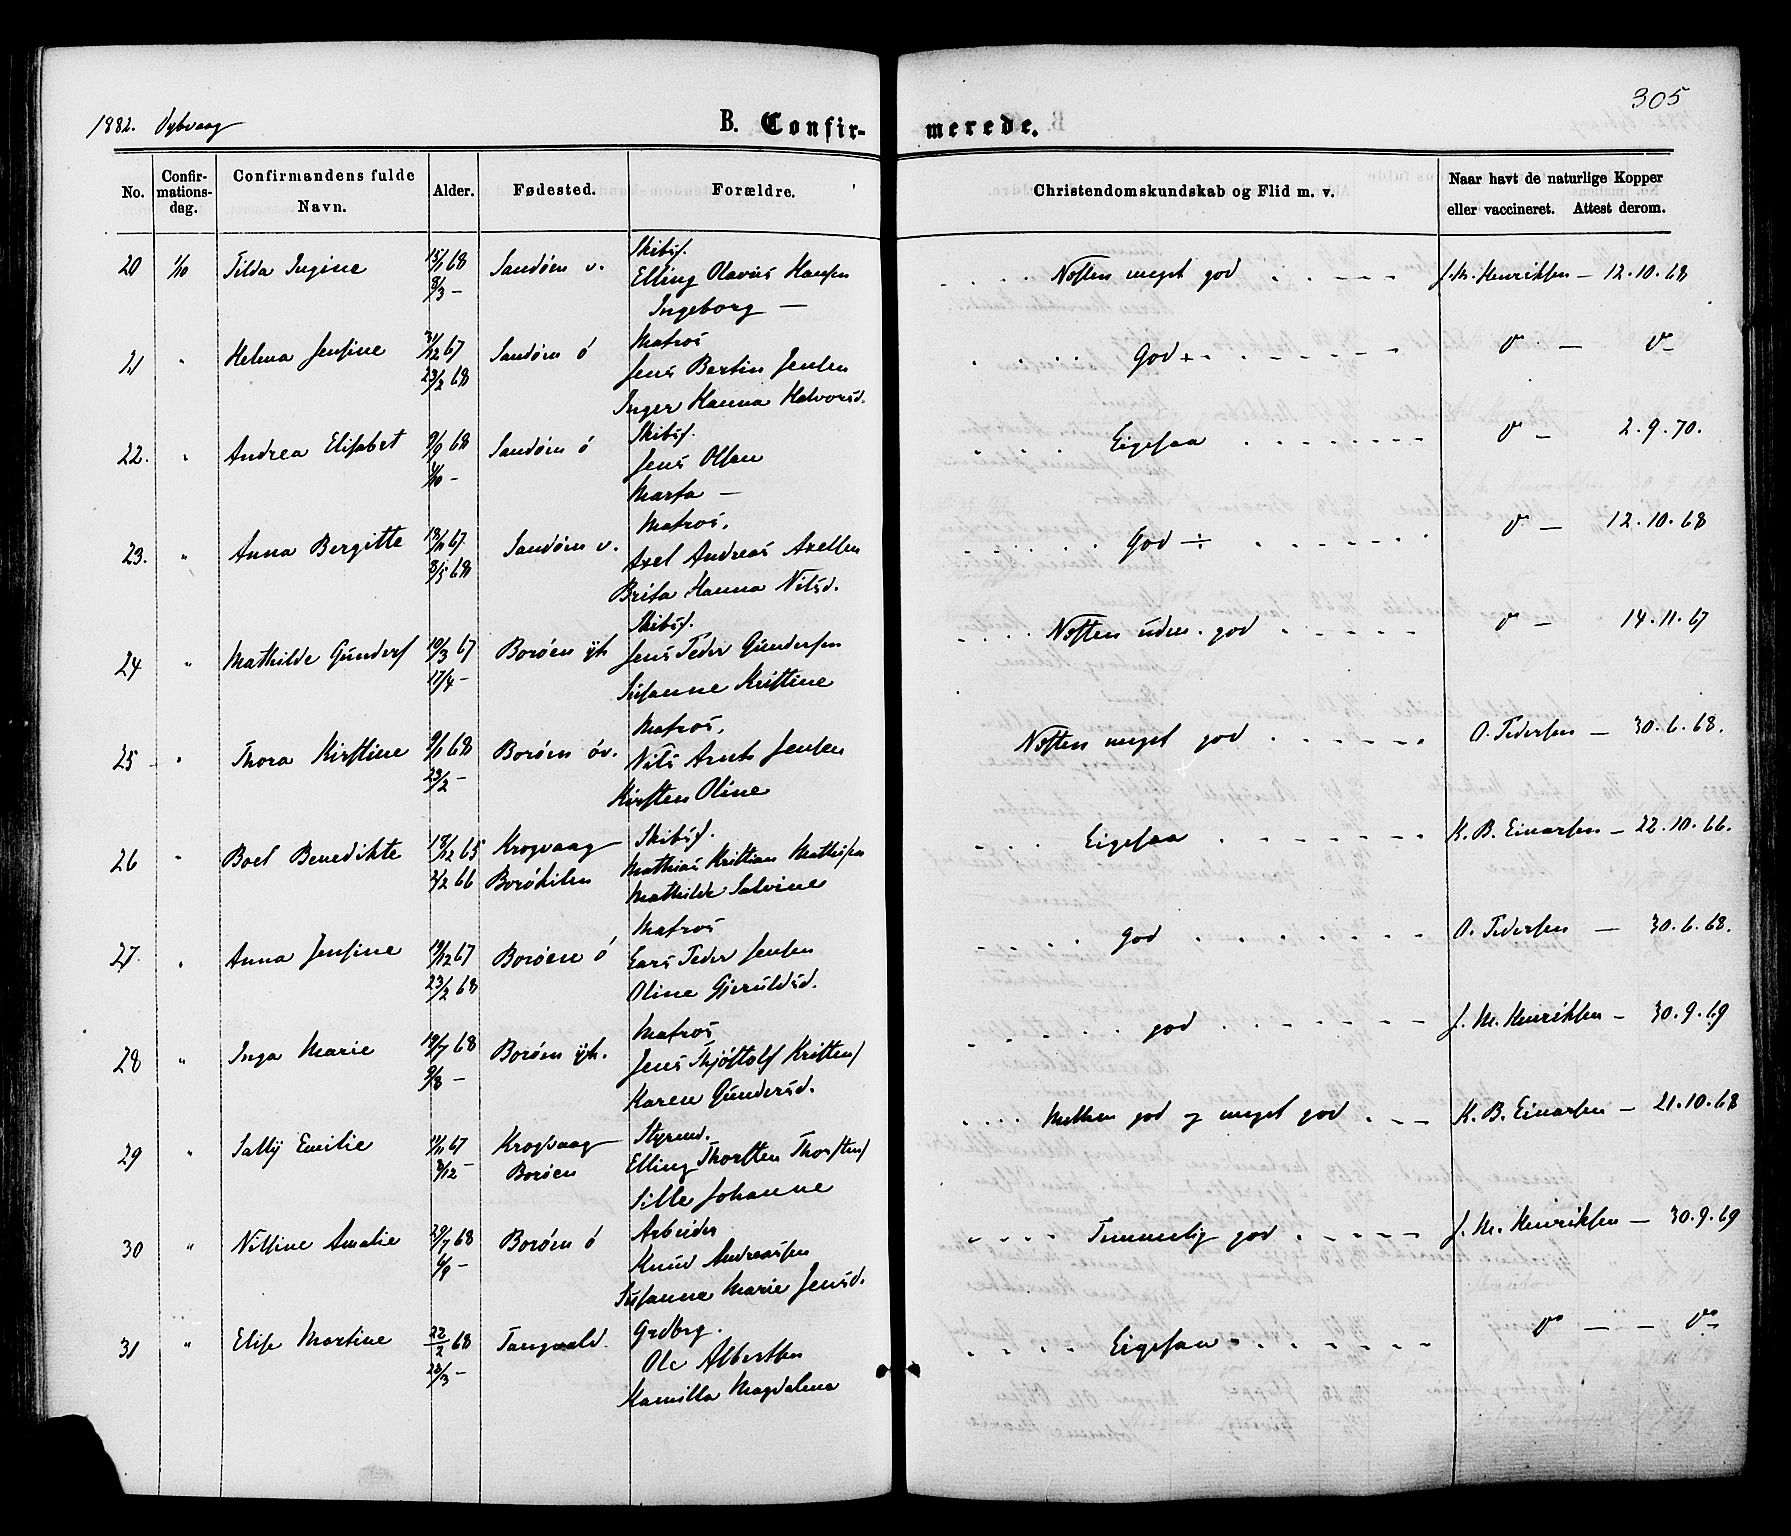 305
1882. Dybvaag
B. Confir- merede.
No. | Confir-mations-dag. | Confirmandens fulde Navn. | Alder. | Fødested. | Forældre. | Christendomskundskab og Flid m. v. | Naar havt de naturlige Kopper eller vaccineret. Attest derom.
20 1/10 Tilda Ingine 15/1 68 Sandøen v. Skibsf.
8/3 – Elling Olavus Hansen Næsten meget god J. M. Henriksen – 12.10.68
Ingeborg —
21 " Helena Jensine 31/12 67 Sandøen ø Matros
23/2 68 Jens Bertin Jensen God + v – v –
Inger Hanna Halvorsd.
22. " Andrea Elisabet 9/9 68 Sandøen ø Skibsf.
1/10 – Jens Olsen Eigesaa v – 2.9.70.
Marta —
23. " Anna Bergitte 18/11 67 Sandøen v. Matros.
3/5 68 Axel Andreas Axelsen God ÷ v – 12.10.68
Brita Hanna Nilsd.
24 " Mathilde Gunders 10/3 67 Borøen yt. Skibsf.
17/4 – Jens Peder Gundersen Næsten udm. god v – 14.11.67
Susanne Kristine
25 " Thora Kirstine 9/1 68 Borøen øv. Matros.
23/2 – Nils Arnt Jensen Næsten meget god O. Pedersen – 30.6.68.
Kirsten Oline
26 " Boel Benedikte 18/12 65 Krogvaag Skibsf.
2/2 66 Borøkilen Mathias Kristian Mathisen Eigesaa K. B. Einarsen – 22.10.66.
Mathilde Salvine
27. " Anna Jensine 19/12 67 Borøen ø Matros
23/2 68 Lars Peder Jensen god O. Pedersen — 30.6.68.
Oline Gjeruldsd.
28 " Inga Marie 19/7 68 Borøen yt. Matros
9/8 – Jens Thjøstolf Kristens god J. M. Henriksen – 30.9.69
Karen Gundersd.
29 " Sally Emilie 11/11 67 Krogvaag Styrmd.
8/12 – Borøen Elling Thorsten Thorstens Mellem god og meget god K. B. Einarsen – 21.10.68
Sille Johanne
30 " Nilsine Amalie 20/7 68 Borøen ø Arbeider
6/9 – Knud Andreassen Temmelig god J. M. Henriksen – 30.9.69
Susanne Marie Jensd.
31 " Elise Martine 22/2 68 Tangvald. Grdbrg.
22/3 – Ole Albertsen Eigesaa v — – v –
Kamilla Magdalena